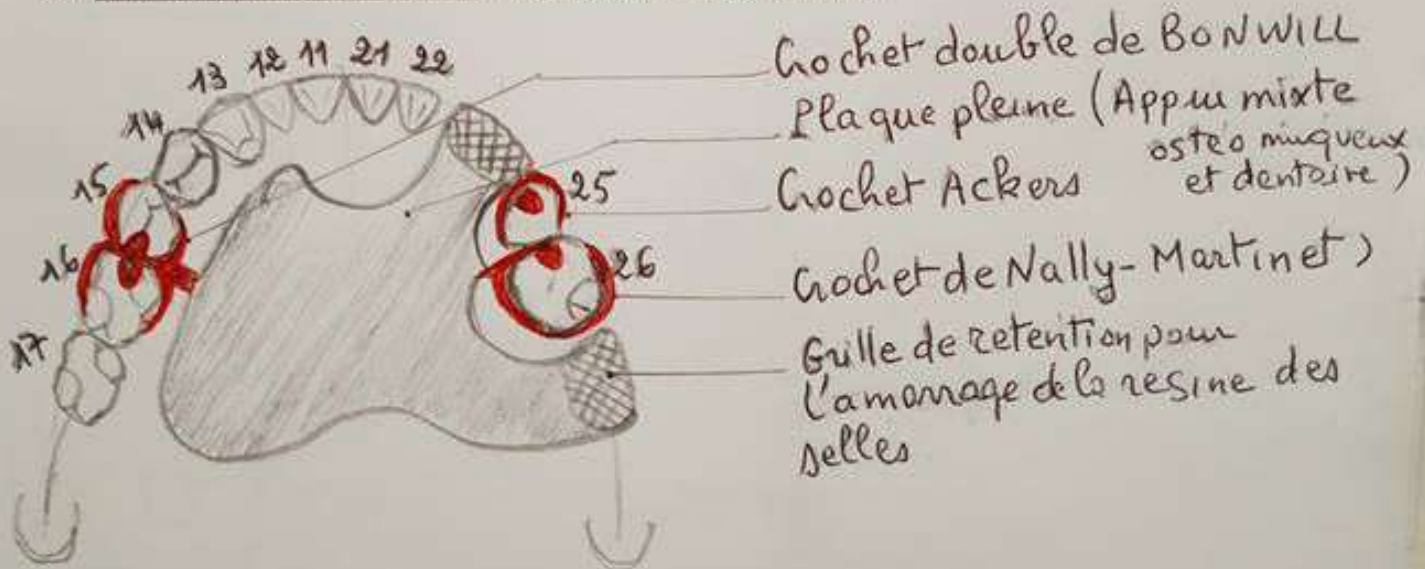 13 12 11 21 22
14
15
16
17
25
26
Crochet double de BONWILL
Plaque pleine (Appui mixte
osteo muqueux
et dentaire)
Crochet Ackers
Crochet de Nally-Martinet)
Grille de retention pour
l'amarrage de la resine des
selles